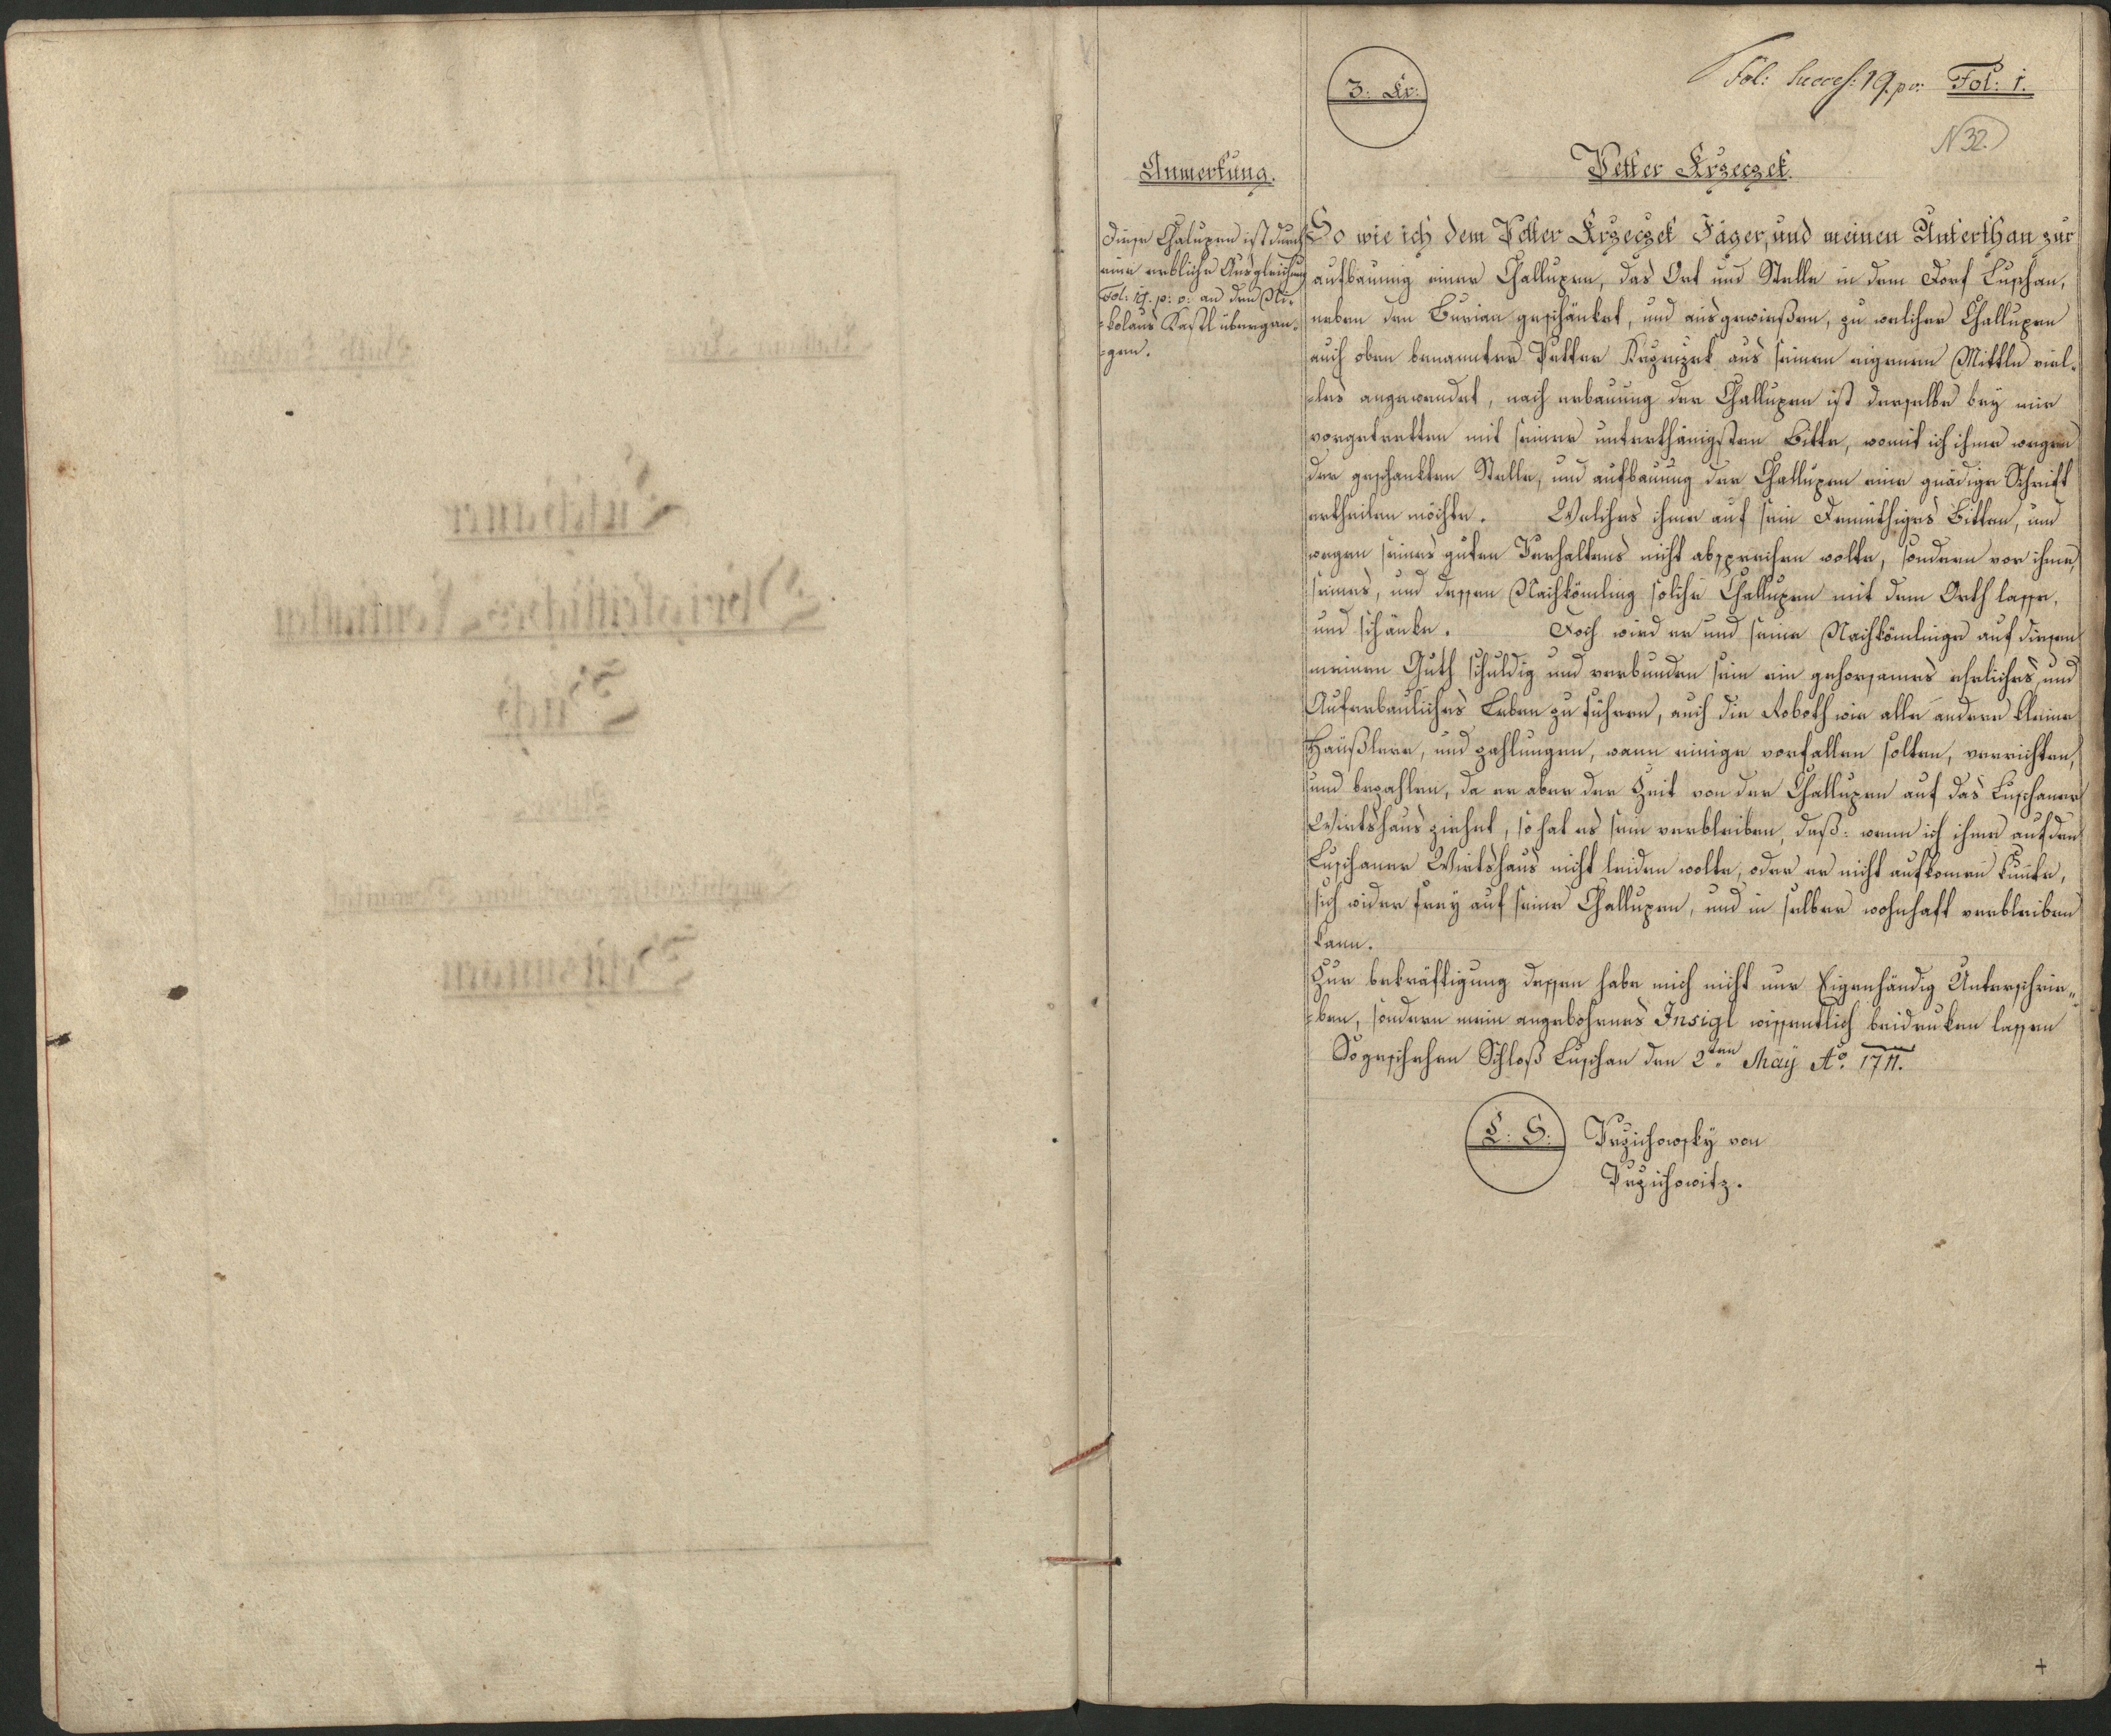 3: Kr:
Fol: Succes: 19. p v: Fol: 1.
N 32.
Anmerkung.
Diese Chalupen ist durch
eine erbliche Ausgleichung
Fol: 19. p: v: an den Ni-
=kolaus Kastl übergan-
=gen.
Petter Krzeczek.
So wie ich dem Petter Krzeczek Jäger, und meinen Unterthan zur
aufbauung einer Challupen, das Ort und Stelle in dem Dorf Luschan,
neben den Burian geschänket, und ausgewießen, zu welcher Challupen
auch oben benannter Petter Krzeczek aus seinen eigenen Mittln viel-
=les angewendet, nach erbauung der Challupen ist derselbe bey mir
vorgetretten mit seiner unterthänigsten Bitte, womit ich ihme wegen
der geschankten Stelle, und aufbauung der Challupen eine gnädige Schrift
ertheilen möchte. Welches ihme auf sein Demüthiges Bitten, und
wegen seines guten Verhaltens nicht absprechen wolte, sondern vor ihme,
seines, und dessen Nachkömling solche Challupen mit dem Orth lasse,
und schänke. Doch wird er und seine Nachkömlinge auf diesen
meinen Guth schuldig und verbunden sein ein gehorsames ehrliches, und
Auferbauliches Leben zu führen, auch die Roboth wie alle andere kleine
Häußlere, und zahlungen, wann einige vorfallen solten, verrichten,
und bezahlen, da er aber der Zeit von der Challupen auf das Luschaner
Wirtshaus ziehet, so hat es sein verbleiben, daß: wenn ich ihme auf den
Luschaner Wirtshaus nicht leiden wolte, oder er nicht aufkomen kunte,
sich wider frey auf seine Challupen, und in selber wohnhaft verbleiben
kann.
Zur bekräftigung dessen habe mich nicht nur Eigenhändig Unterschrie-
=ben, sondern mein angebohrnes Insigl wissentlich beidruken lassen
So geschehen Schloß Luschan den 2ten May Ao: 1711.
L: S: Przichowsky von
Przichowitz.